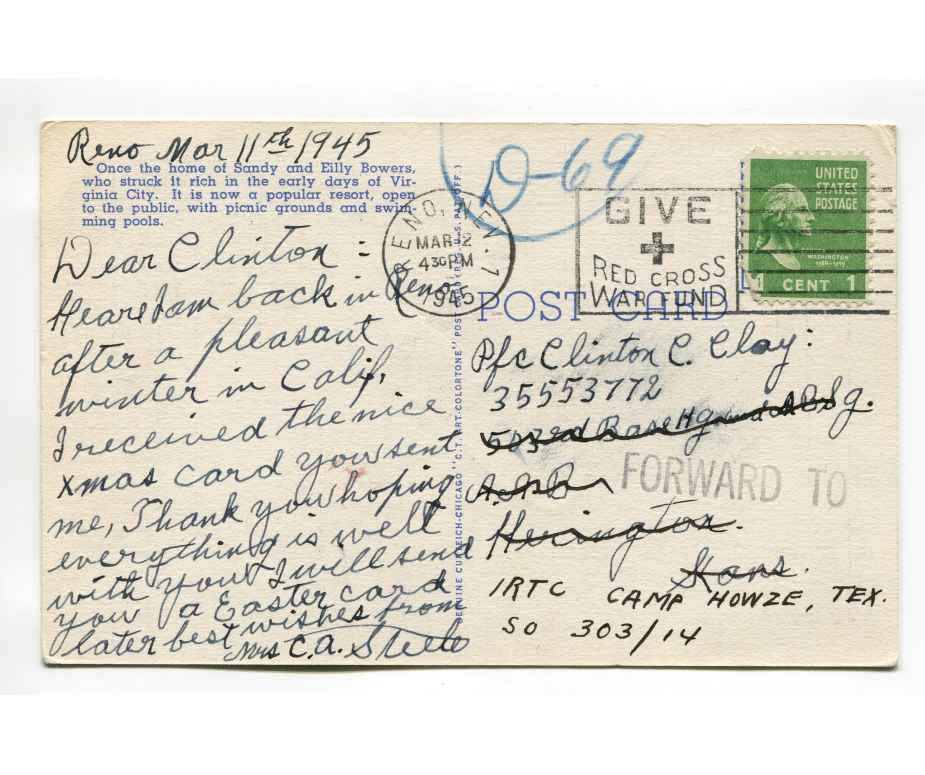 Reno Mar 11th 1945
Once the home of Sandy and Eilly Bowers,
who struck it rich in the early days of Vir-
ginia City. It is now a popular resort, open
to the public, with picnic grounds and swim-
ming pools.
Dear Clinton :
Hear I am back in Reno
after a pleasant
winter in Calif,
I received the nice
xmas card you sent
me, Thank you hoping
everything is well
with you I will send
you a Easter card
later best wishes from
Mrs C.A. Steele
GENUINE CURTEICH-CHICAGO "C.T. ART-COLORTONE" POST CARD (REG. U.S. PAT. OFF.)
D-69
RENO, NEV. 1
MAR 12
430 PM
1945
GIVE
RED CROSS
WAR FUND
UNITED
STATES
POSTAGE
WASHINGTON
1789-1797
1 CENT 1
POST CARD
Pfc Clinton C. Clay:
35553772
503rd Base Hq and A B Sq.
A.A.B
FORWARD TO
Herington
Kans.
IRTC CAMP HOWZE, TEX.
SO 303/14